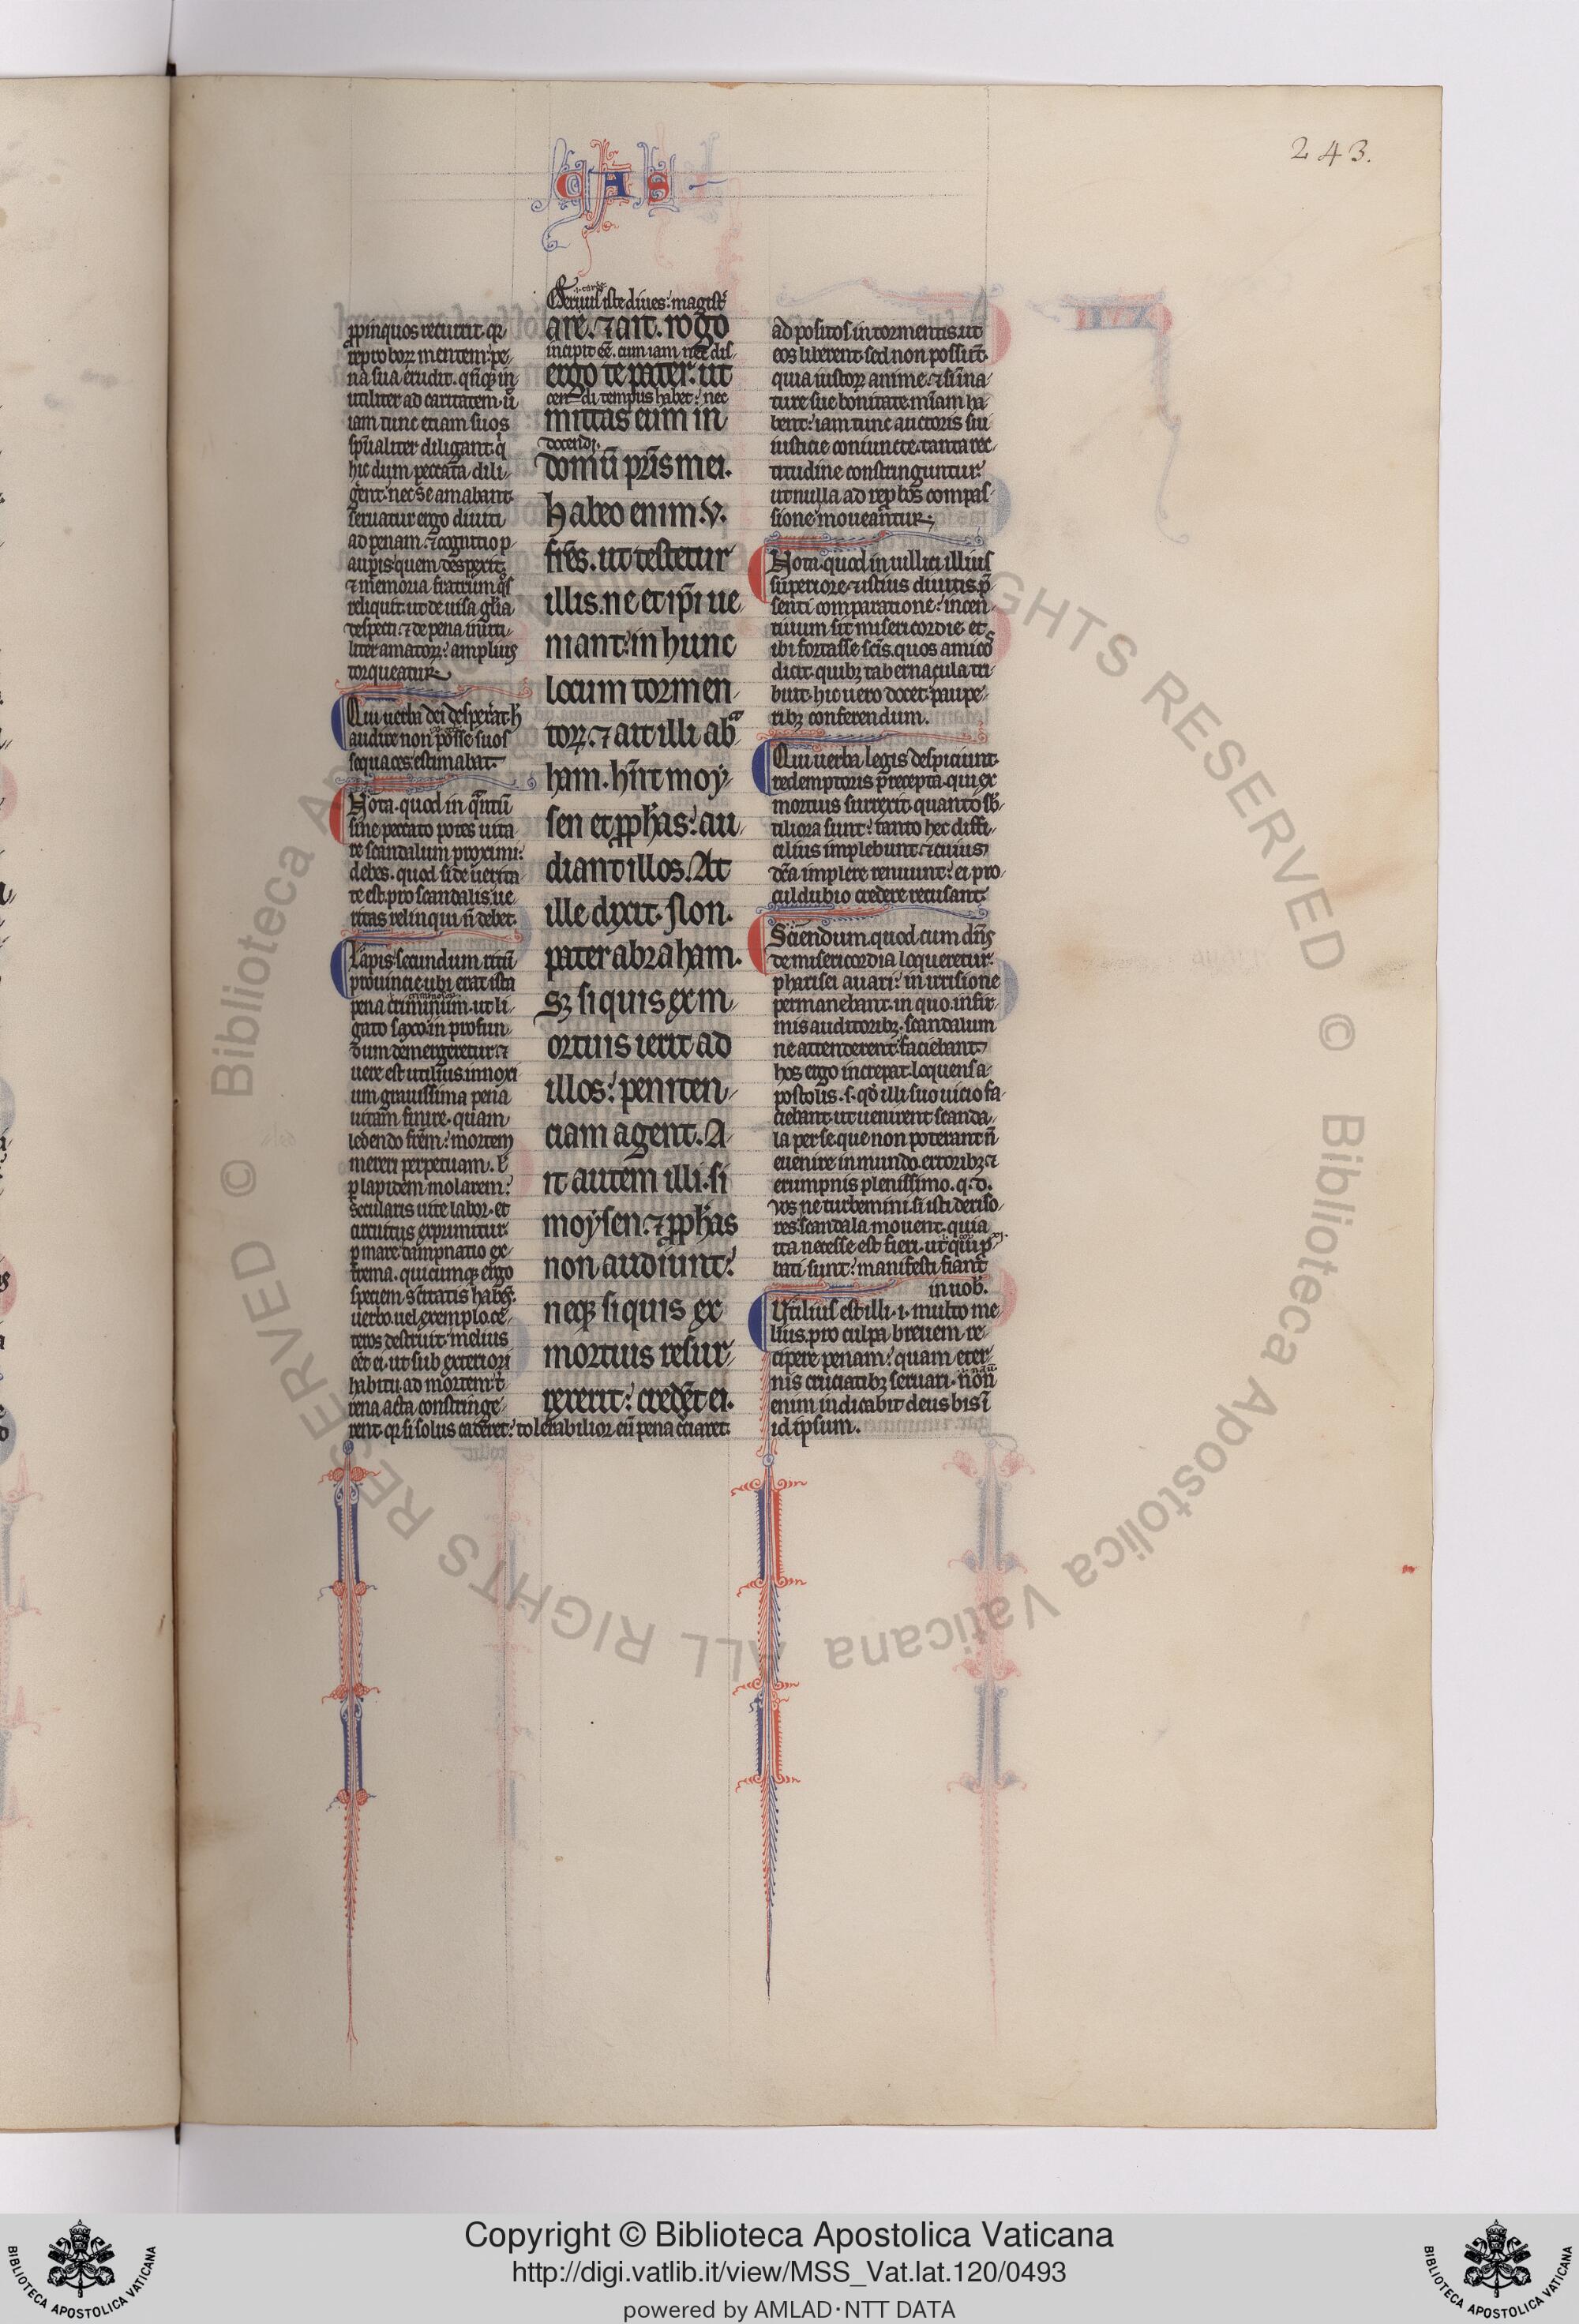 243.
CAS
ꝓpinquos recurrit. qꝛ
reproboꝝ mentem pe-
na sua erudit. qñqꝫ in
utiliter ad caritatem. ut
iam tunc etiam suos
sp̃ualiter diligant. qͥ
hic dum peccata dili-
gerent. nec se amabant.
seruatur ergo diuiti
ad penam. ⁊ cognitio p
auperis quem despexit.
⁊ memoria fratrum qͦs
reliquit. ut de uisa gl̃ia
despecti. ⁊ de pena inuti-
liter amatoꝝ. amplius
torqueatur.
Qui uerba dei despexerat. h̾
audire non posse suos
sequaces estimabat.
Nota. quod in qͣntũ
sine peccato potes uita-
re scandalum proximi.
debes. quod si de uerita-
te est. pro scandalis. ue
ritas relinqui ñ debet.
Lapis secundum ritũ
prouincie. ubi erat ista
pena criminum. ut li-
gato saxo in profun-
dum demergeretur. ⁊
uere est utilius innoxi
um grauissima pena
uitam finire. quam
ledendo fr̃em. mortem
mereri perpetuam. ł
ꝑ lapidem molarem.
secularis uite labor. et
circuitus exprimitur.
ꝑ mare. dampnatio ex-
trema. quicumqꝫ ergo
speciem sc̃itatis habẽs.
uerbo. uel exemplo. ce-
teros destruit. melius
eẽt ei. ut sub exteriori
habitu. ad mortem. t̾
rena acta constringe-
rent. qꝛ si solus caderet. tolerabilior eũ pena c̾ciaret.
Seruus iste diues. magistr̾
are. ⁊ ait. rogo
incipit eẽ. cum iam nec dis-
ergo te pater. ut
cendi tempus habet. nec
mittas eum in
docendi.
domũ pr̃is mei.
habeo enim. v.
fr̃es. ut testetur
illis. ne et ip̃i ue
niant. in hunc
locum tormen-
toꝝ. ⁊ ait illi abͣ
ham. hñt moy-
sen et ꝓphas. au-
diant illos. At
ille dixit. Non.
pater abraham.
Sꝫ si quis ex m-
ortuis ierit ad
illos. peniten-
ciam agent. A-
it autem illi. si
moysen. ⁊ ꝓphas
non audiunt.
neqꝫ si quis ex
mortuis resur-
rexerit. credẽt ei.
ad positos in tormentis. ut
eos liberent. sed non possũt.
quia iustoꝝ anime. ⁊ si in na-
ture sue bonitate. mĩam ha-
bent. iam tunc auctoris sui
iusticie coniuncte. tanta rec-
titudine constringuntur.
ut nulla ad rep̾bos compas-
sione moueantur.
Nota. quod in uillici illius
superiore. ⁊ istius diuitis. p̃-
senti comparatione. incen-
tiuum sit misericordie. et
ibi fortasse sc̃is. quos amicos
dicit. quibꝫ tabernacula tri-
buit. hic uero docet. paupe-
ribꝫ conferendum.
Qui uerba legis despiciunt.
redemptoris precepta. qui ex
mortuis surrexit. quanto sb̾-
tiliora sunt. tanto hec diffi-
cilius implebunt. ⁊ cuius
dc̃a implere renuunt. ei pro-
culdubio credere recusant.
Sciendum. quod cum dñs
de misericordia loqueretur.
pharisei auari. in irrisione
permanebant. in quo. infir-
mis auditoribꝫ. scandalum
ne attenderent. faciebant.
hos ergo increpat. loquens a-
postolis. s. qđ illi suo uicio fa-
ciebant. ut uenirent scanda-
la per se. que non poterant ñ
euenire in mundo. erroribꝫ. ⁊
erumpnis plenissimo. q. d.
uos ne turbemini. si isti deriso-
res. scandala mouent. quia
ita necesse est fieri. ut qui p̃
bati sunt. manifesti fiant
in uob̾.
Utilius est illi. i. multo me-
lius. pro culpa breuem re-
cipere penam. quam eter-
nis cruciatibꝫ seruari. non
enim iudicabit deus bis ĩ
id ipsum.
Copyright © Biblioteca Apostolica Vaticana
http://digi.vatlib.it/view/MSS_Vat.lat.120/0493
powered by AMLAD·NTT DATA
BIBLIOTECA APOSTOLICA VATICANA
BIBLIOTECA APOSTOLICA VATICANA
© Biblioteca Apostolica Vaticana ALL RIGHTS RESERVED
© Biblioteca Apostolica Vaticana ALL RIGHTS RESERVED